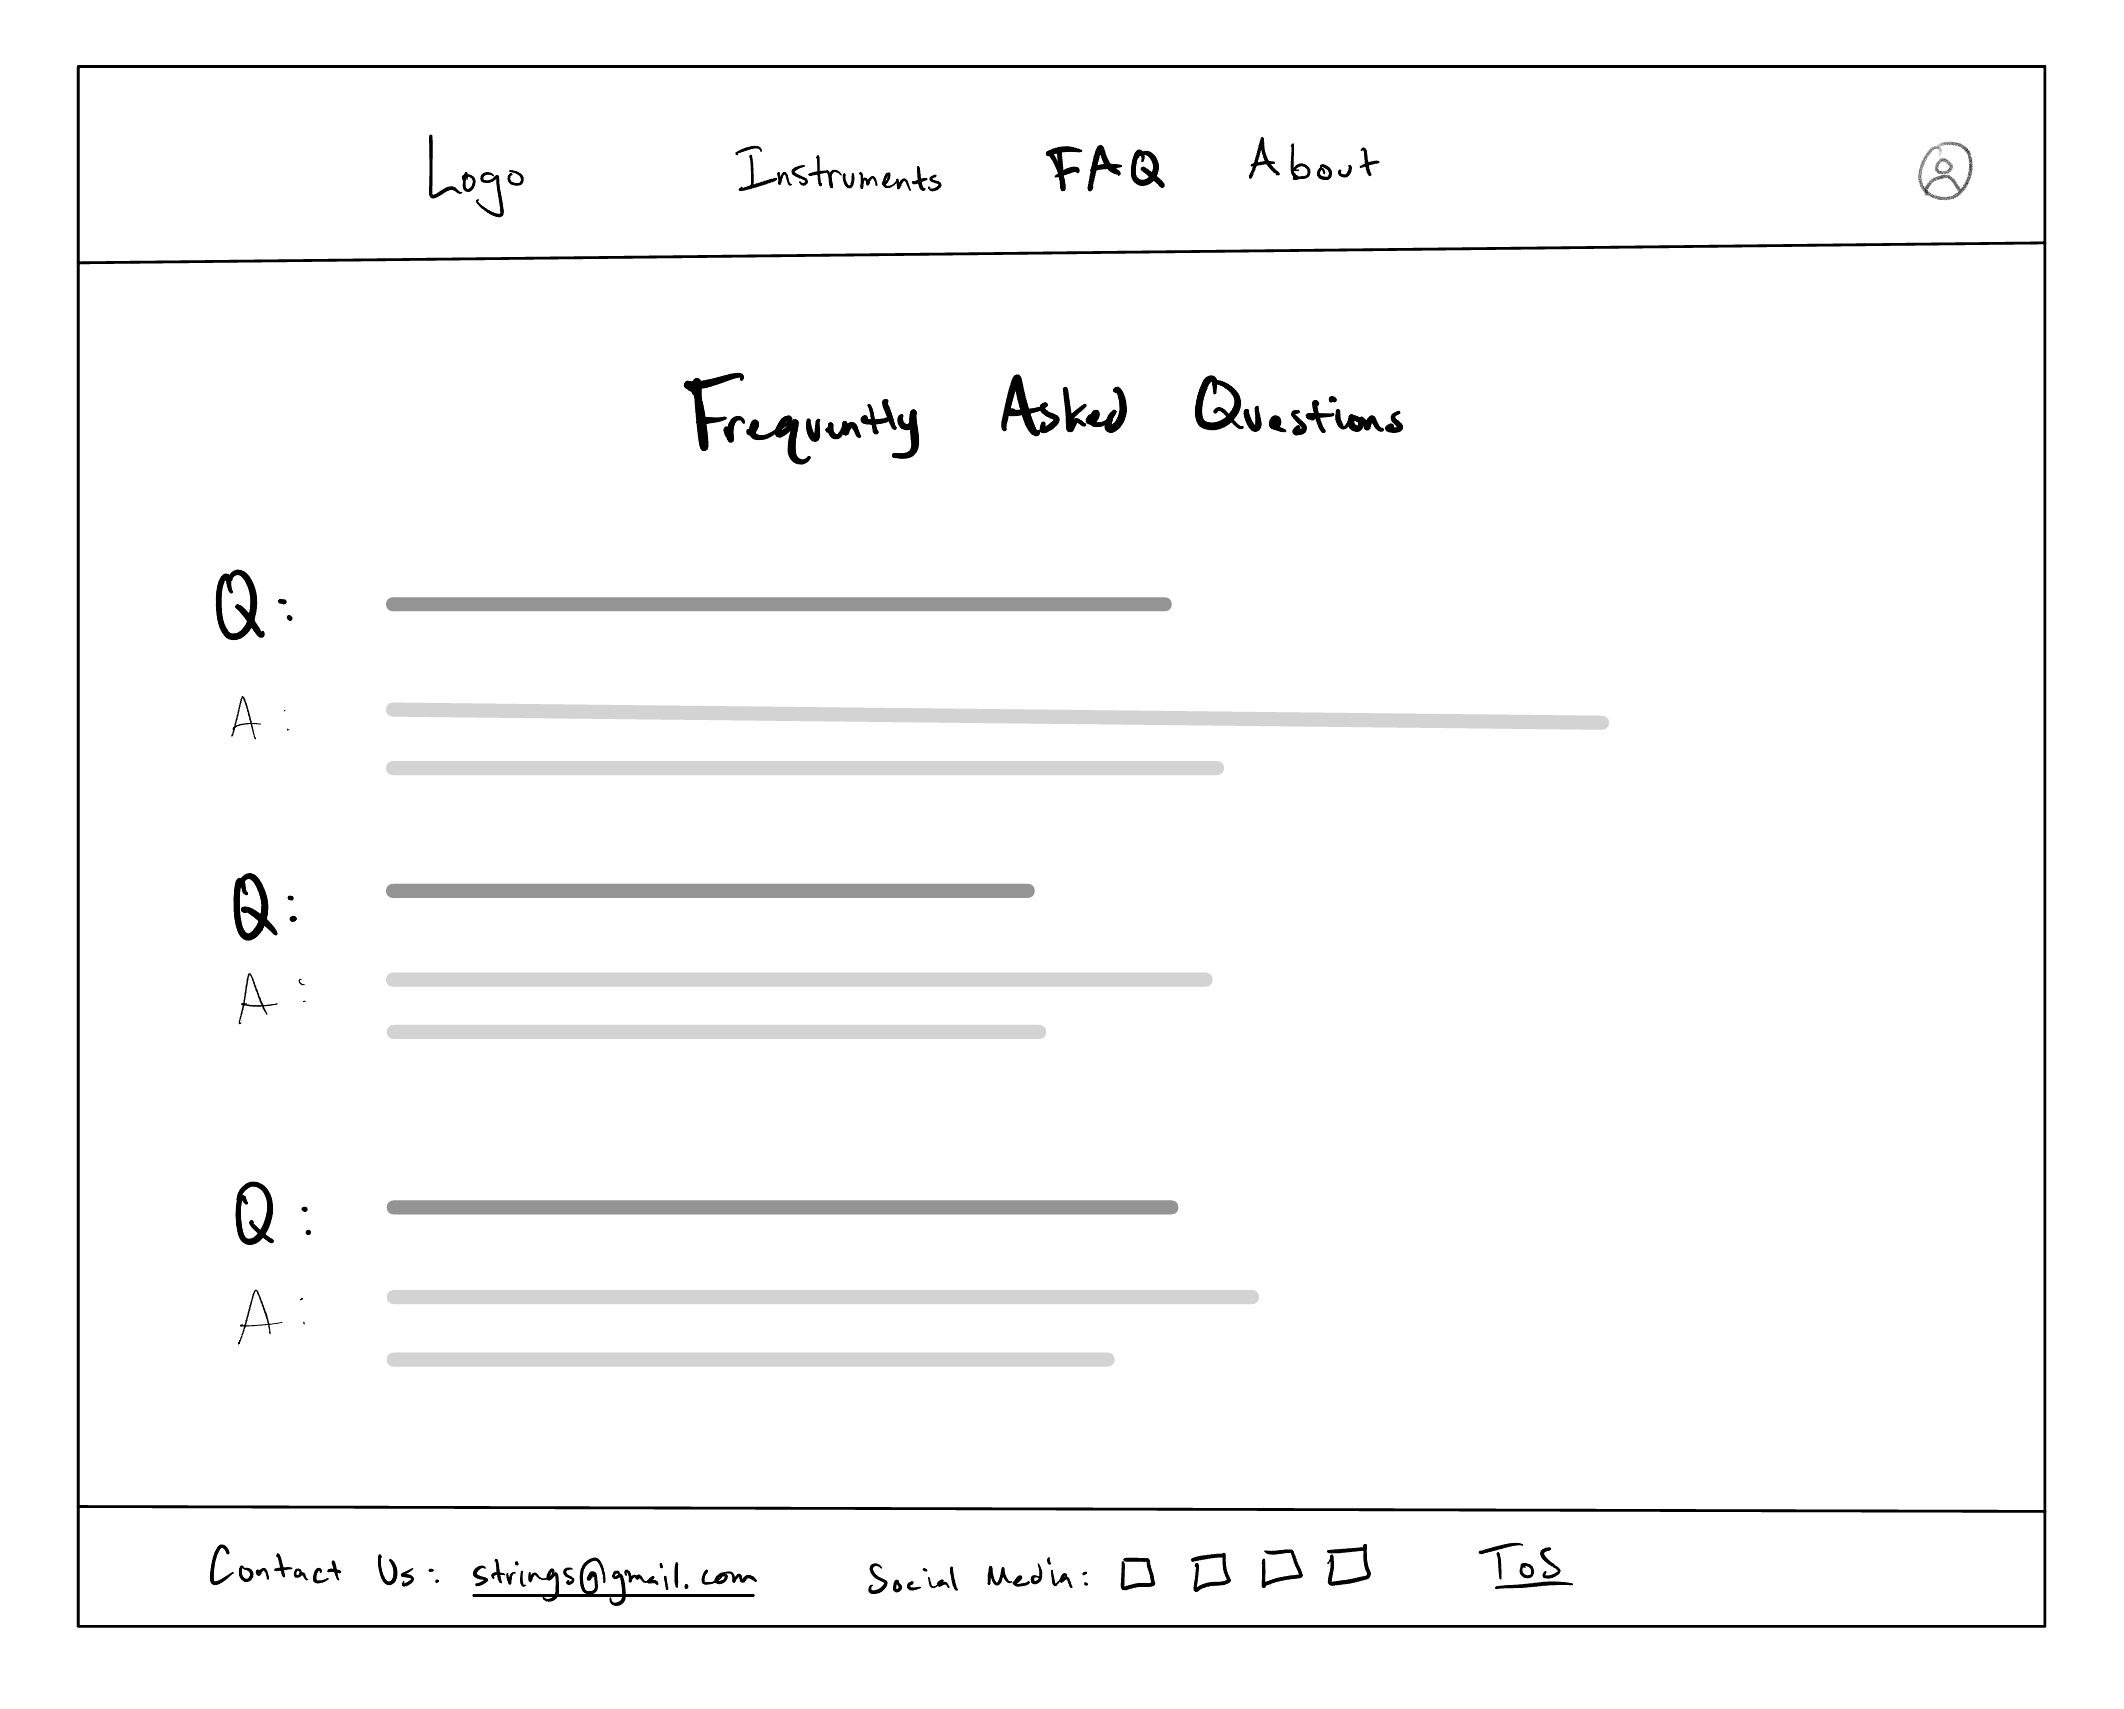 Logo Instruments FAQ About
Frequently Asked Questions
Q:
A:
Q:
A:
Q:
A:
Contact Us: strings@gmail.com Social Media: ToS